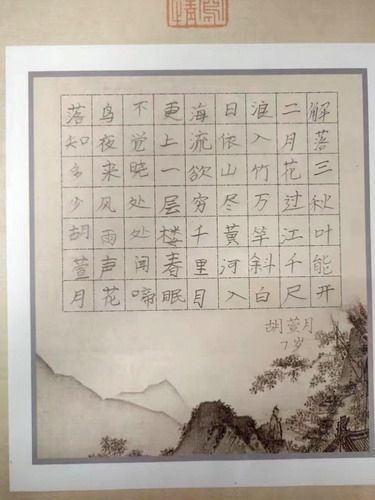 解落三秋叶能开
二月花过江千尺
浪入竹万竿斜白
日依山尽黄河入
海流欲穷千里目
更上一层楼春眠
不觉晓处处闻啼
鸟夜来风雨声花
落知多少胡萱月
胡萱月
7岁